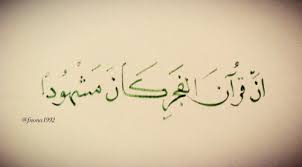 إنّ قُرآنَ الفجرِ كَانَ مَشْهُودًا
@fnona1992